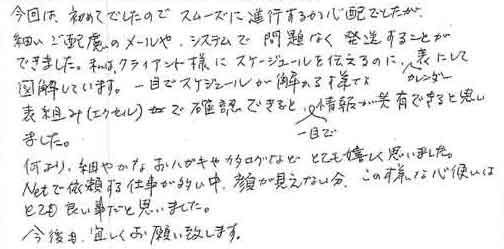 今回は、初めてでしたので スムーズに進行するか心配でしたが、
細い ご配慮のメールや、システムで 問題なく 発送することが
できました。私は、クライアント様に スケジュールを伝えるのに、表にして
カレンダー
図解しています。一目でスケジュールが解かる様な
表組み(エクセル)で確認できると、情報が共有できると思い
一目で
ました。
何より、細やかな おハガキやカタログなど とても嬉しく思いました。
Netで依頼する仕事が多い中、顔が見えない分、この様な心使いは
とても良い事だと思いました。
今後も、宜しくお願い致します。